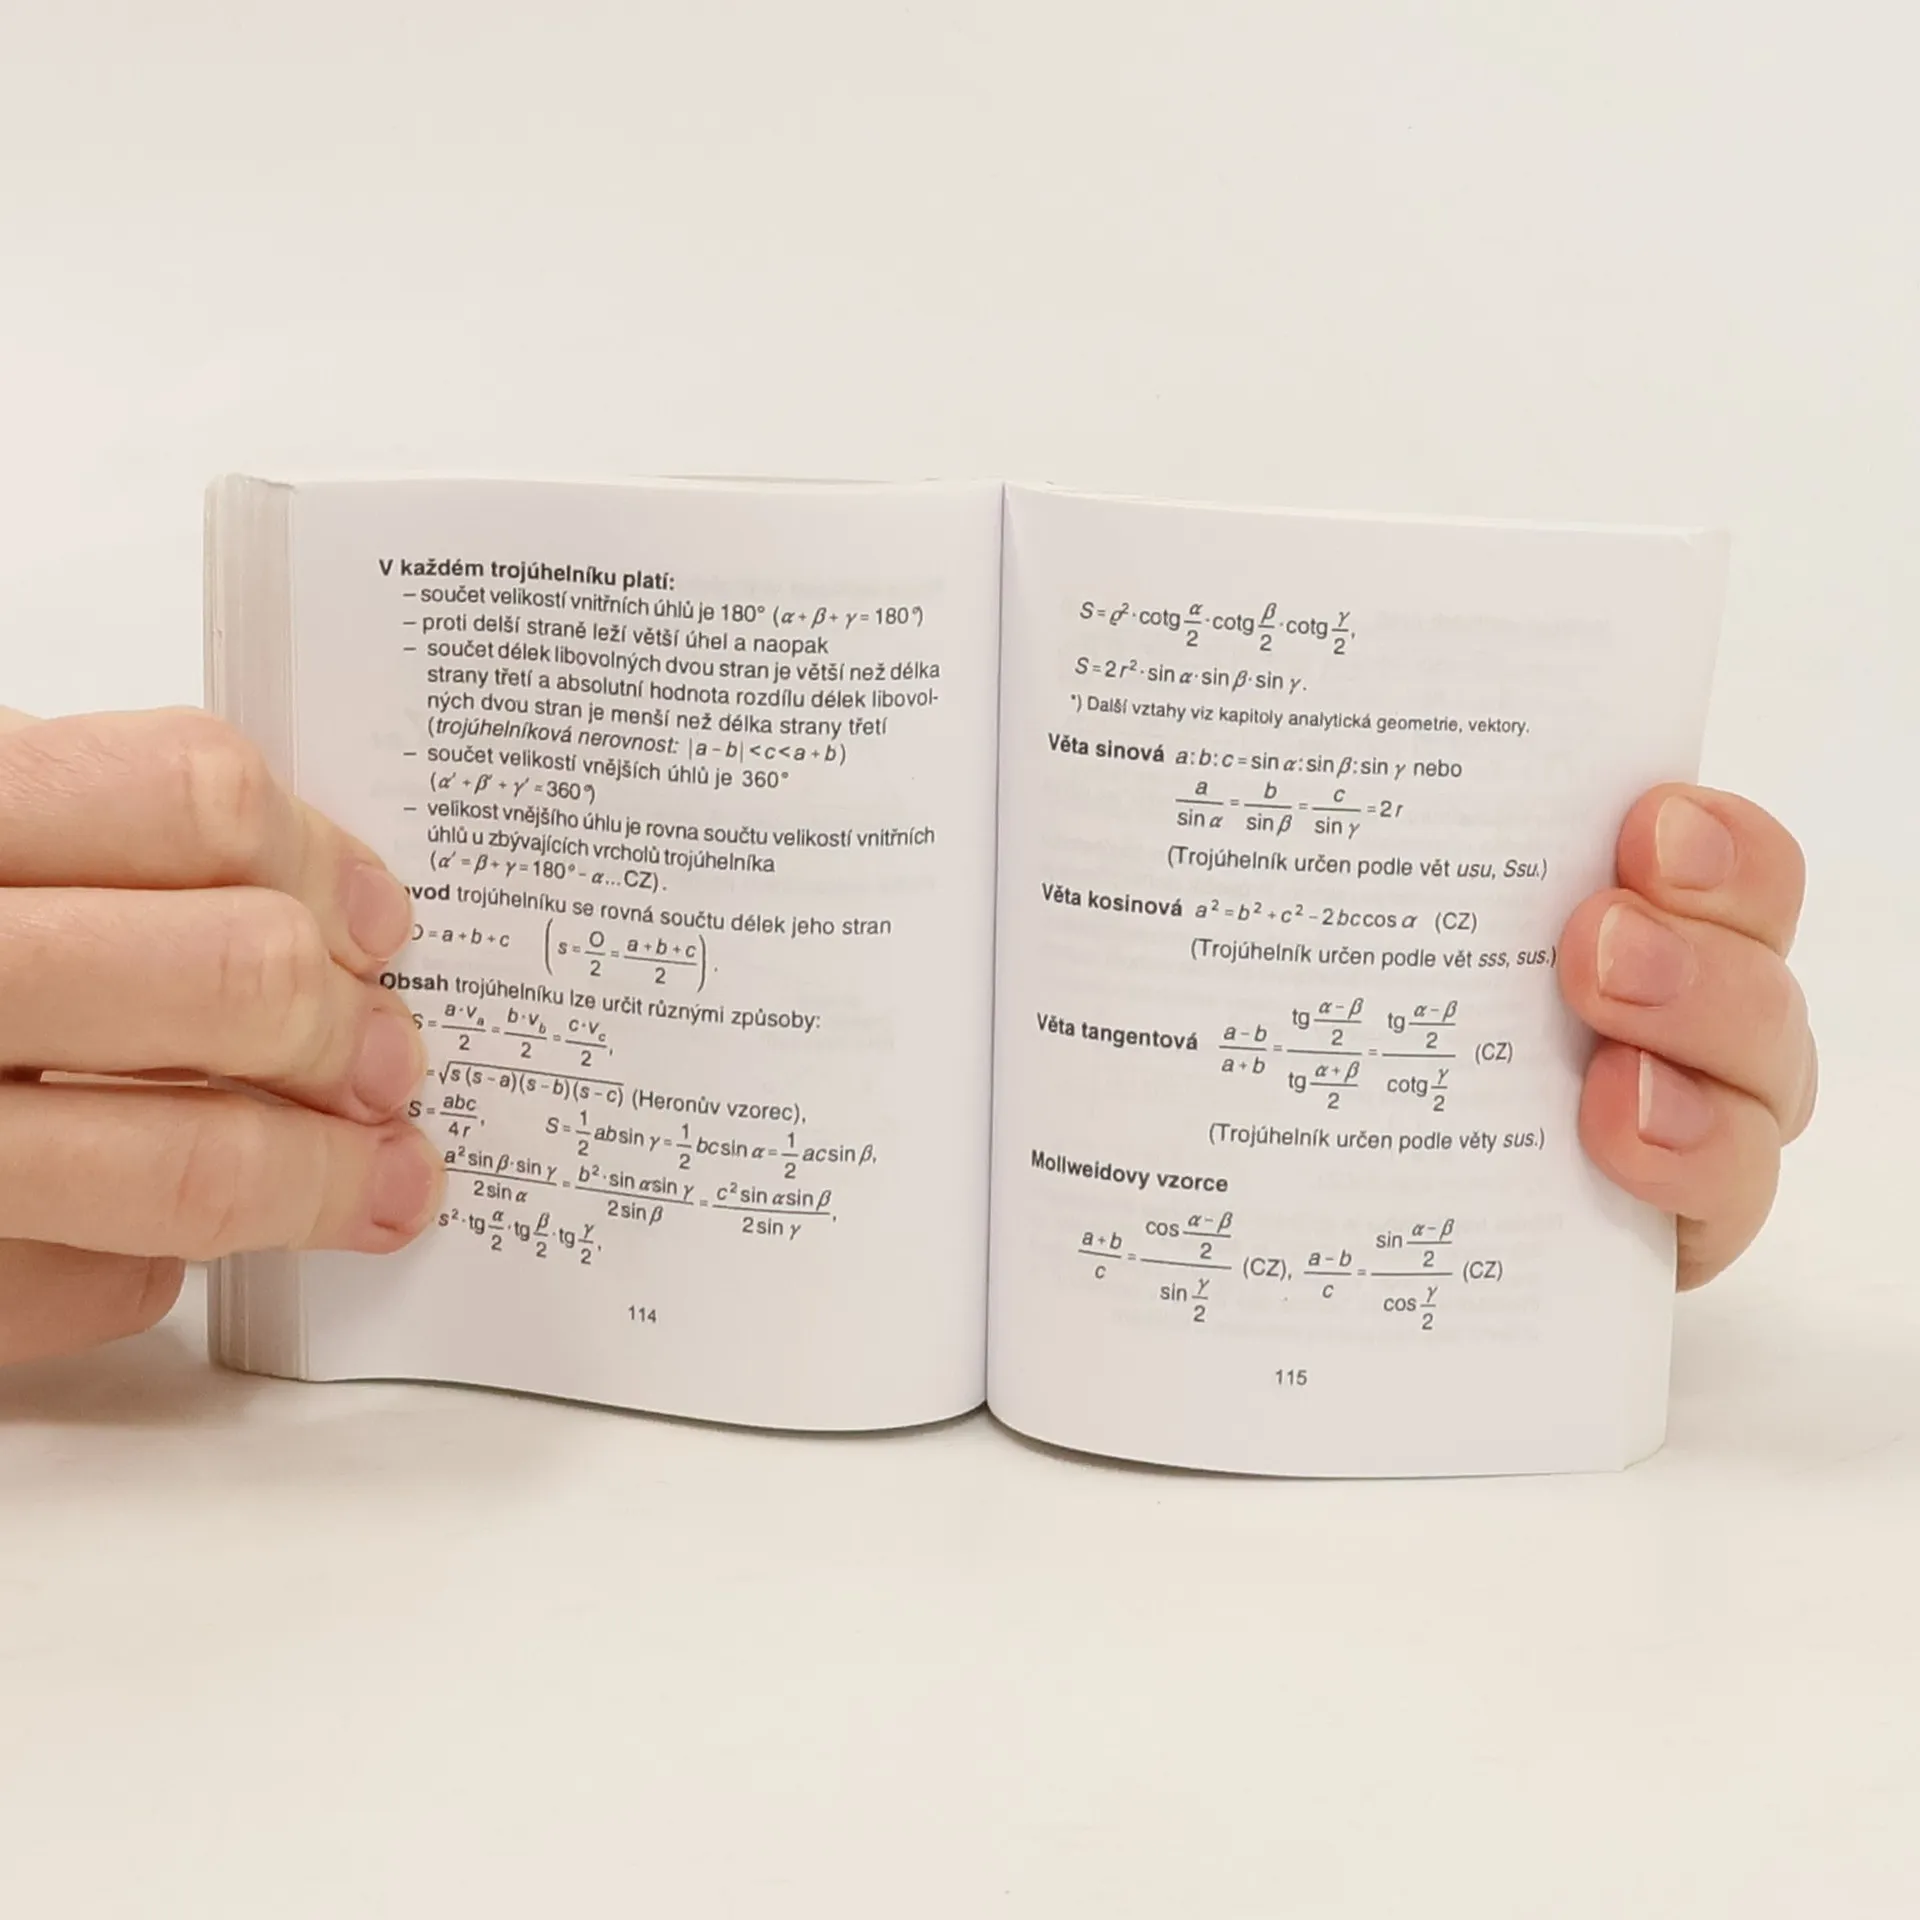 V každém trojúhelníku platí:
– součet velikostí vnitřních úhlů je 180° (α + β + γ = 180°)
– proti delší straně leží větší úhel a naopak
– součet délek libovolných dvou stran je větší než délka
strany třetí a absolutní hodnota rozdílu délek libovol-
ných dvou stran je menší než délka strany třetí
(trojúhelníková nerovnost: |a - b| < c < a + b)
– součet velikostí vnějších úhlů je 360°
(α' + β' + γ' = 360°)
– velikost vnějšího úhlu je rovna součtu velikostí vnitřních
úhlů u zbývajících vrcholů trojúhelníka
(α' = β + γ = 180° - α... CZ).
vod trojúhelníku se rovná součtu délek jeho stran
O = a + b + c (s = O/2 = (a + b + c)/2).
Obsah trojúhelníku lze určit různými způsoby:
S = a·vₐ/2 = b·v_b/2 = c·v_c/2,
= √(s(s - a)(s - b)(s - c)) (Heronův vzorec),
S = abc/4r, S = 1/2 ab sin γ = 1/2 bc sin α = 1/2 ac sin β,
a² sin β · sin γ / 2 sin α = b² · sin α sin γ / 2 sin β = c² sin α sin β / 2 sin γ,
s² · tg α/2 · tg β/2 · tg γ/2,
114
S = ϱ² · cotg α/2 · cotg β/2 · cotg γ/2,
S = 2r² · sin α · sin β · sin γ.
*) Další vztahy viz kapitoly analytická geometrie, vektory.
Věta sinová a : b : c = sin α : sin β : sin γ nebo
a/sin α = b/sin β = c/sin γ = 2r
(Trojúhelník určen podle vět usu, Ssu.)
Věta kosinová a² = b² + c² - 2bc cos α (CZ)
(Trojúhelník určen podle vět sss, sus.)
Věta tangentová (a - b)/(a + b) = tg (α - β)/2 / tg (α + β)/2 = tg (α - β)/2 / cotg γ/2 (CZ)
(Trojúhelník určen podle věty sus.)
Mollweidovy vzorce
(a + b)/c = cos (α - β)/2 / sin γ/2 (CZ), (a - b)/c = sin (α - β)/2 / cos γ/2 (CZ)
115